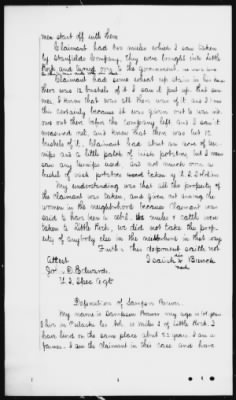 men start off with them
Claimant had two mules which I saw taken
by Stanfields Company, they were brought into Little
Rock and turned over to the government,
Claimant had some wheat up stairs in his house
there was 12 bushels of it I saw it put up, that sum-
mer I know that was all there was of it and I know
this certainly because it was given out to
men out there before the Company left and I saw it
measured out and know that there was but 12
bushels of it. Claimant had about an acre of tur-
nips and a little patch of irish potatoes, but I never
saw any turnips used and not much over a
bushel of irish potatoes taken by U.S. Soldiers
My understanding was that all the property of
the Claimant was taken, and given out among the
women in the neighborhood because Claimant was
said to have been a rebel. the mules & cattle were
taken to Little Rock, we did not take the prop-
erty of anybody else in the neighborhood in that way
Further this deponent saith not
Attest
Isaiah X
his
mark
U.S. Spec Agt
Deposition of Sampson Brown.
My name is Sampson Brown my age is 64 years
I live in Pulaski Co. Ark. 10 miles S of Little Rock. I
have lived on the same place about 22 years I am a
farmer. I am the claimant in this case and have